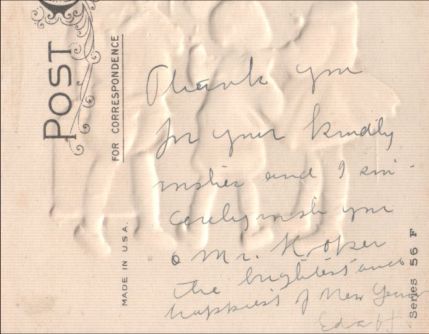 POST
FOR CORRESPONDENCE
MADE IN U.S.A.
Thank you
for your kindly
wishes and I sin-
cerely wish you
& Mr.
the brightest and
happiest of New Years
Series 56 F